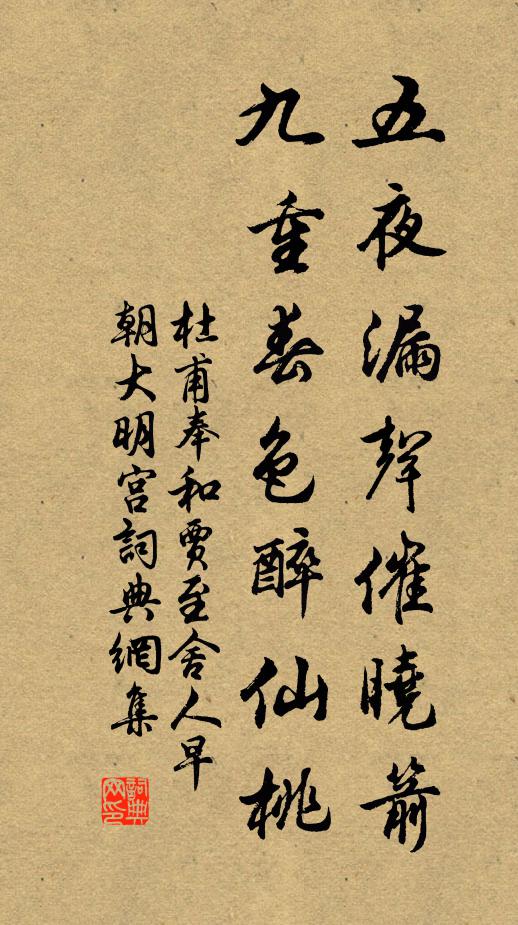 五夜漏聲催曉箭
九重春色醉仙桃
杜甫奉和賈至舍人早
朝大明宮詞典網集
詞典
网印